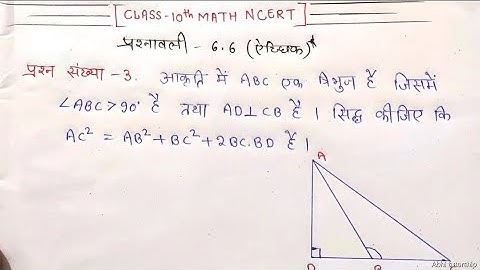 [CLASS-10th MATH NCERT]
प्रश्नावली - 6.6 (ऐच्छिक)*
प्रश्न संख्या -3. आकृति में ABC एक त्रिभुज है जिसमें
∠ABC>90° है तथा AD⊥CB है । सिद्ध कीजिए कि
AC² = AB²+BC²+2BC.BD है ।
A
D B